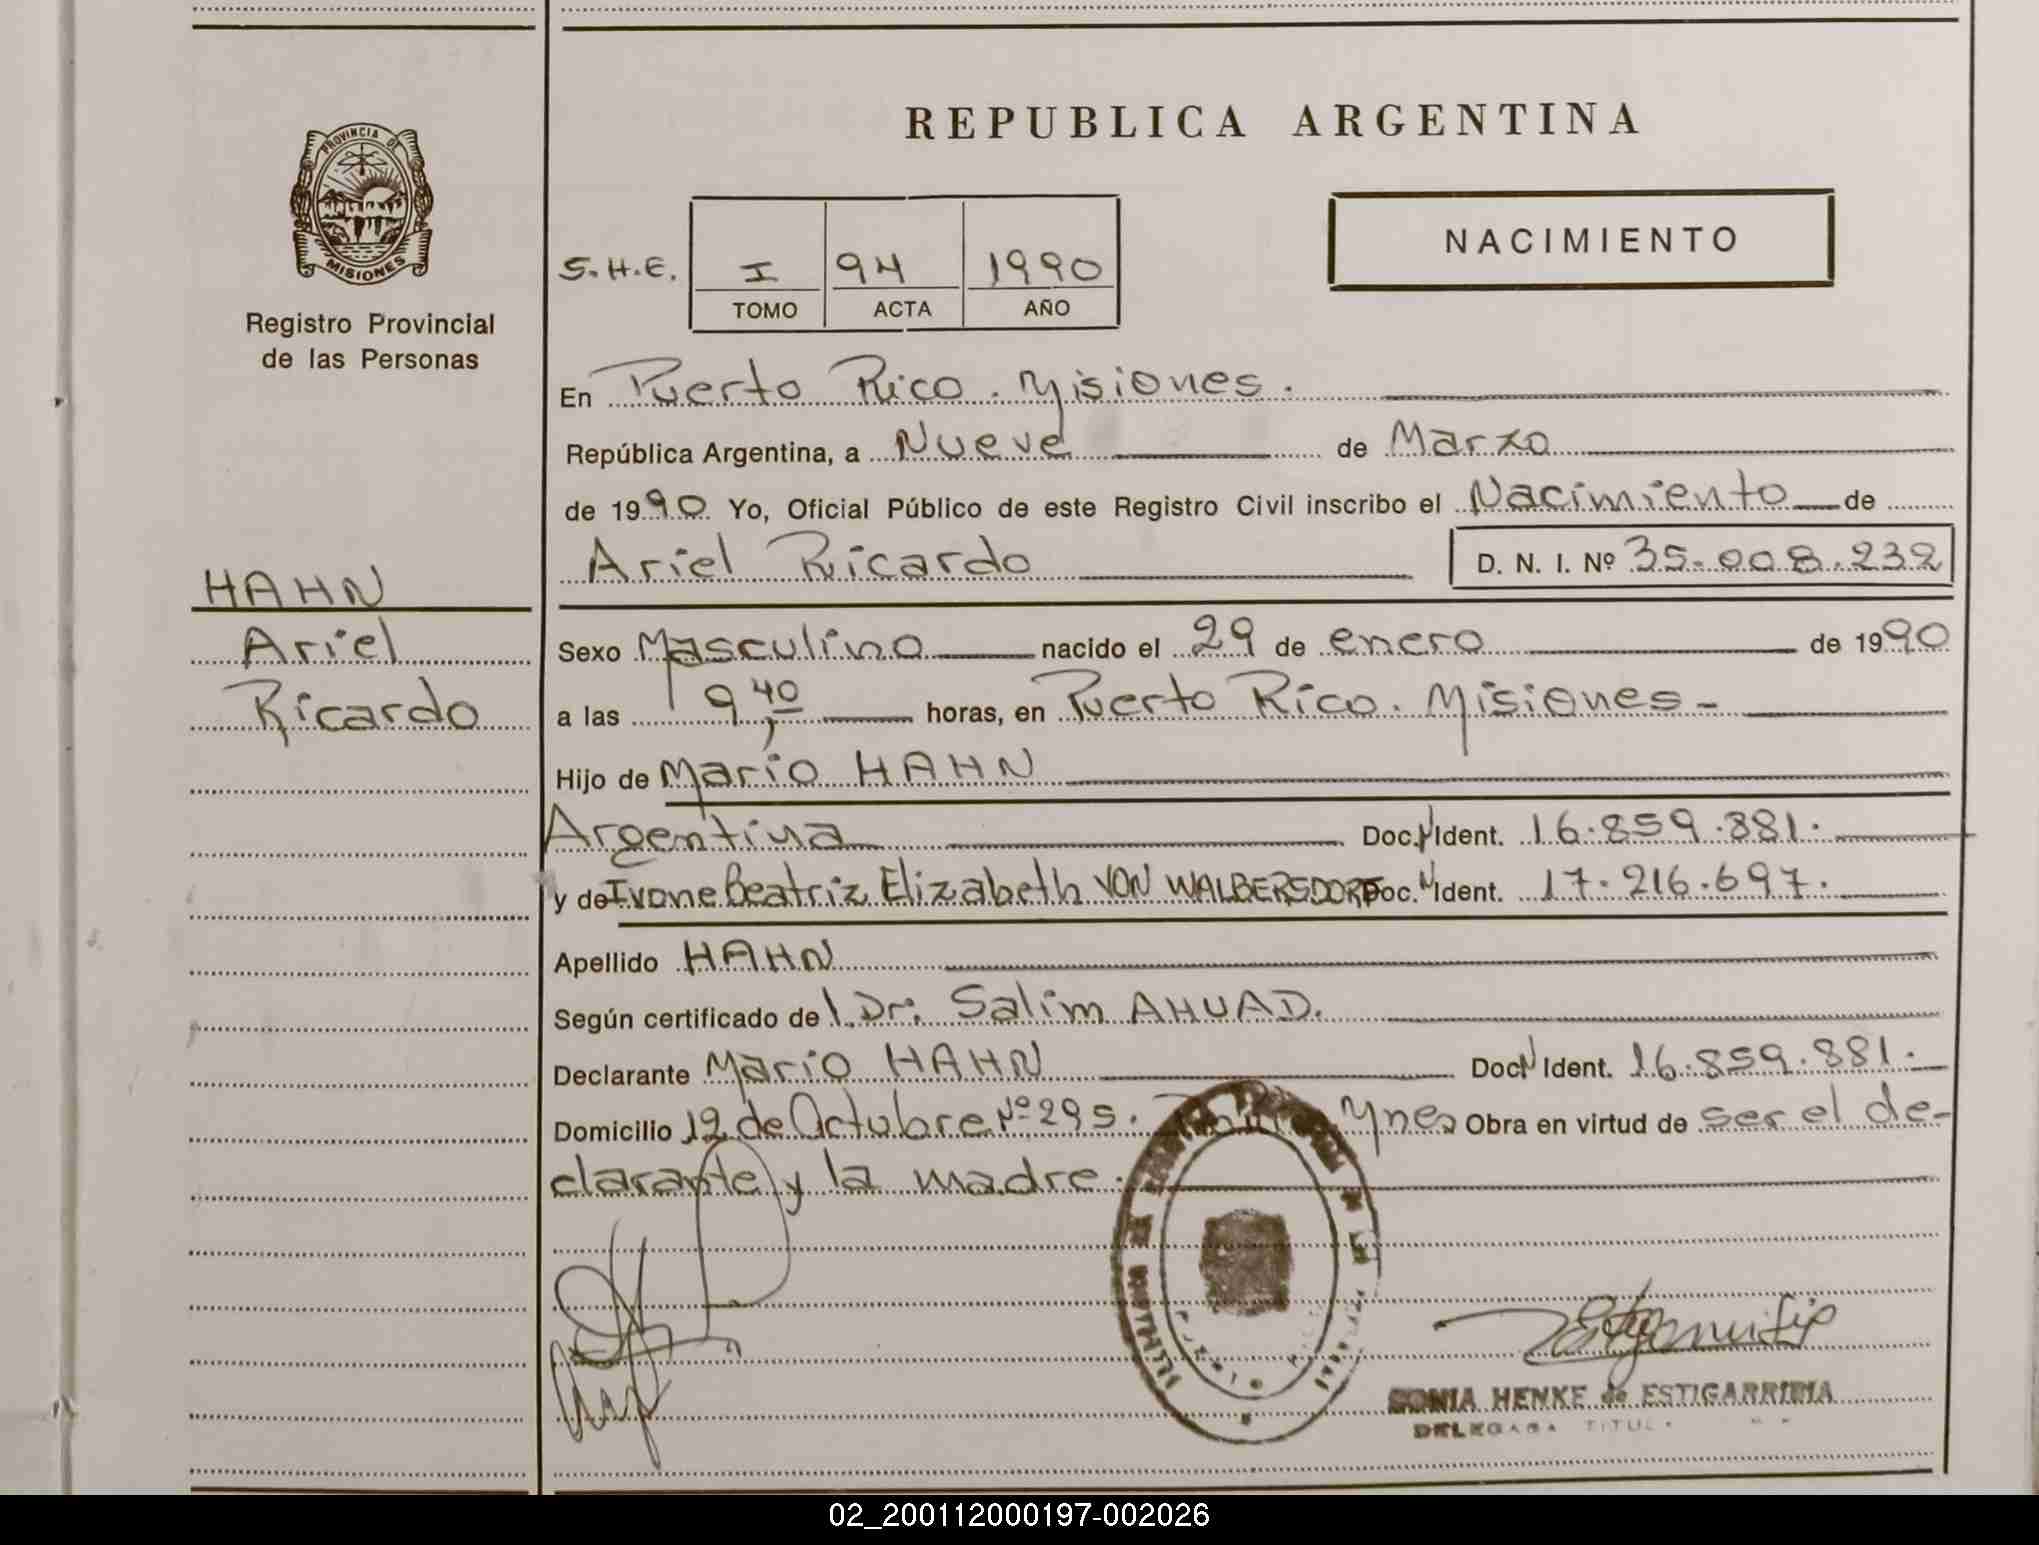 PROVINCIA DE
MISIONES
Registro Provincial
de las Personas
HAHN
Ariel
Ricardo
REPUBLICA ARGENTINA
NACIMIENTO
S.H.E. I 94 1990
TOMO ACTA AÑO
En Puerto Rico. Misiones.
República Argentina, a Nueve de Marzo
de 1990 Yo, Oficial Público de este Registro Civil inscribo el Nacimiento de
Ariel Ricardo D. N. I. Nº 35.008.232
Sexo Masculino nacido el 29 de enero de 1990
a las 9,40 horas, en Puerto Rico. Misiones-
Hijo de Mario HAHN
Argentina Doc. N Ident. 16.859.881.
y de Ivone Beatriz Elizabeth VON WALBERSDORF Doc. N Ident. 17.216.697.
Apellido HAHN
Según certificado de l. Dr. Salim AHUAD.
Declarante Mario HAHN Doc N Ident. 16.859.881.
Domicilio 12 de Octubre Nº 295. Obra en virtud de ser el de-
clarante y la madre.
SONIA HENKE de ESTIGARRIBIA
DELEGADA TITUL
02_200112000197-002026